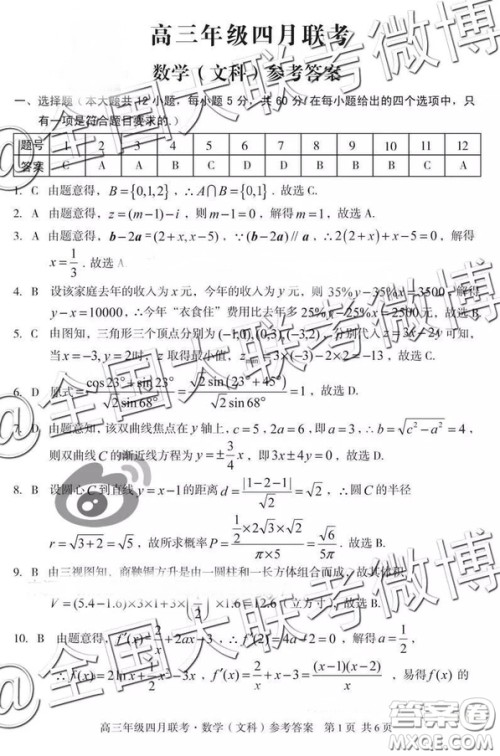 高三年级四月联考
数学（文科）参考答案
一、选择题（本大题共 12 小题，每小题 5 分，共 60 分.在每小题给出的四个选项中，只
有一项是符合题目要求的.）
题号 1 2 3 4 5 6 7 8 9 10 11 12
答案 C A A B C D D B B B
1. C 由题意得，B={0,1,2}，∴A∩B={0,1}. 故选 C.
2. A 由题意得，z=(m−1)−i，则 m−1=0，解得 m=1，故选 A.
3. A 由题意得，b−2a=(2+x,x−5)，∵(b−2a)∥a，∴2(2+x)+x−5=0，解得
x=1/3. 故选 A.
4. B 设该家庭去年的收入为 x 元，今年的收入为 y 元，则 35%y−35%x=3500，解得
y−x=10000，∴今年“衣食住”费用比去年多 25%y−25%x=2500，故选 B.
5. C 由图知，三角形三个顶点分别为 (−1,0),(0,3),(−3,2)，分别代入 z=3x−2y 可知
当 x=−3,y=2 时，z 取得最小值，z=3×(−3)−2×2=−13，故选 C.
6. D 原式=(cos23°+sin23°)/(√2sin68°)=√2sin(23°+45°)/(√2sin68°)=1，故选 D.
7. D 由题意知，该双曲线焦点在 y 轴上，c=5，2a=6，即 a=3，∴b=√(c²−a²)=4，
则双曲线 C 的渐近线方程为 y=±(3/4)x，即 3x±4y=0，故选 D.
8. B 设圆心 C 到直线 y=x−1 的距离 d=|−1−2−1|/√2，∴圆 C 的半径
r=√(3+2)=√5，故所求概率 P=(1/2×2√3×√2)/(π×5)=√6/(5π)，故选 B.
9. B 由三视图知，商鞅铜方升是由一圆柱和一长方体组合而成，故其体积
V=(5.4−1.6)×3×1+3×(1/2)²×1.6=12.6（立方寸），故选 B.
10. B 由题意得，f′(x)=2/x+2ax−3，
f′(x)=2/x+x−3=(x−1)(x−2)/x，易得的
高三年级四月联考·数学（文科）参考答案 第 1 页 共 6 页
@全国大联考微博
@全国大联考微博